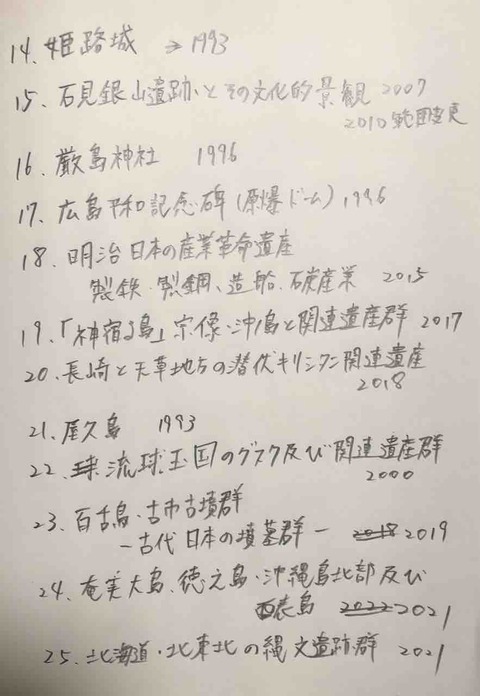 14. 姫路城 → 1993
15. 石見銀山遺跡とその文化的景観 2007
2010 範囲変更
16. 厳島神社 1996
17. 広島平和記念碑(原爆ドーム) 1996
18. 明治日本の産業革命遺産
製鉄・製鋼、造船、石炭産業 2015
19.「神宿る島」宗像・沖ノ島と関連遺産群 2017
20. 長崎と天草地方の潜伏キリシタン関連遺産
2018
21. 屋久島 1993
22. 球 流球王国のグスク及び関連遺産群
2000
23. 百舌鳥・古市古墳群
-古代日本の墳墓群- 2018 2019
24. 奄美大島、徳之島・沖縄島北部及び
西表島 2022 2021
25. 北海道・北東北の縄文遺跡群 2021